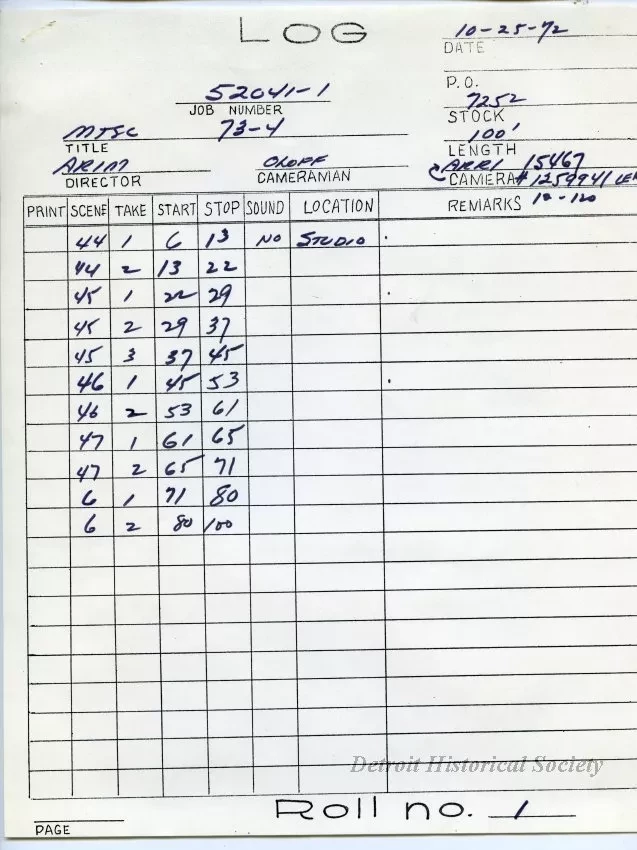 LOG
10-25-72
DATE
P.O.
52041-1
JOB NUMBER
7252
STOCK
MTSC 73-4
TITLE
100'
LENGTH
DIRECTOR
CAMERAMAN
ARRI 15467
CAMERA # 1259941 LEN
12-120
PRINT SCENE TAKE START STOP SOUND LOCATION REMARKS
44 1 6 13 NO STUDIO
44 2 13 22
45 1 22 29
45 2 29 37
45 3 37 45
46 1 45 53
46 2 53 61
47 1 61 65
47 2 65 71
6 1 71 80
6 2 80 100
Detroit Historical Society
Roll no. 1
PAGE